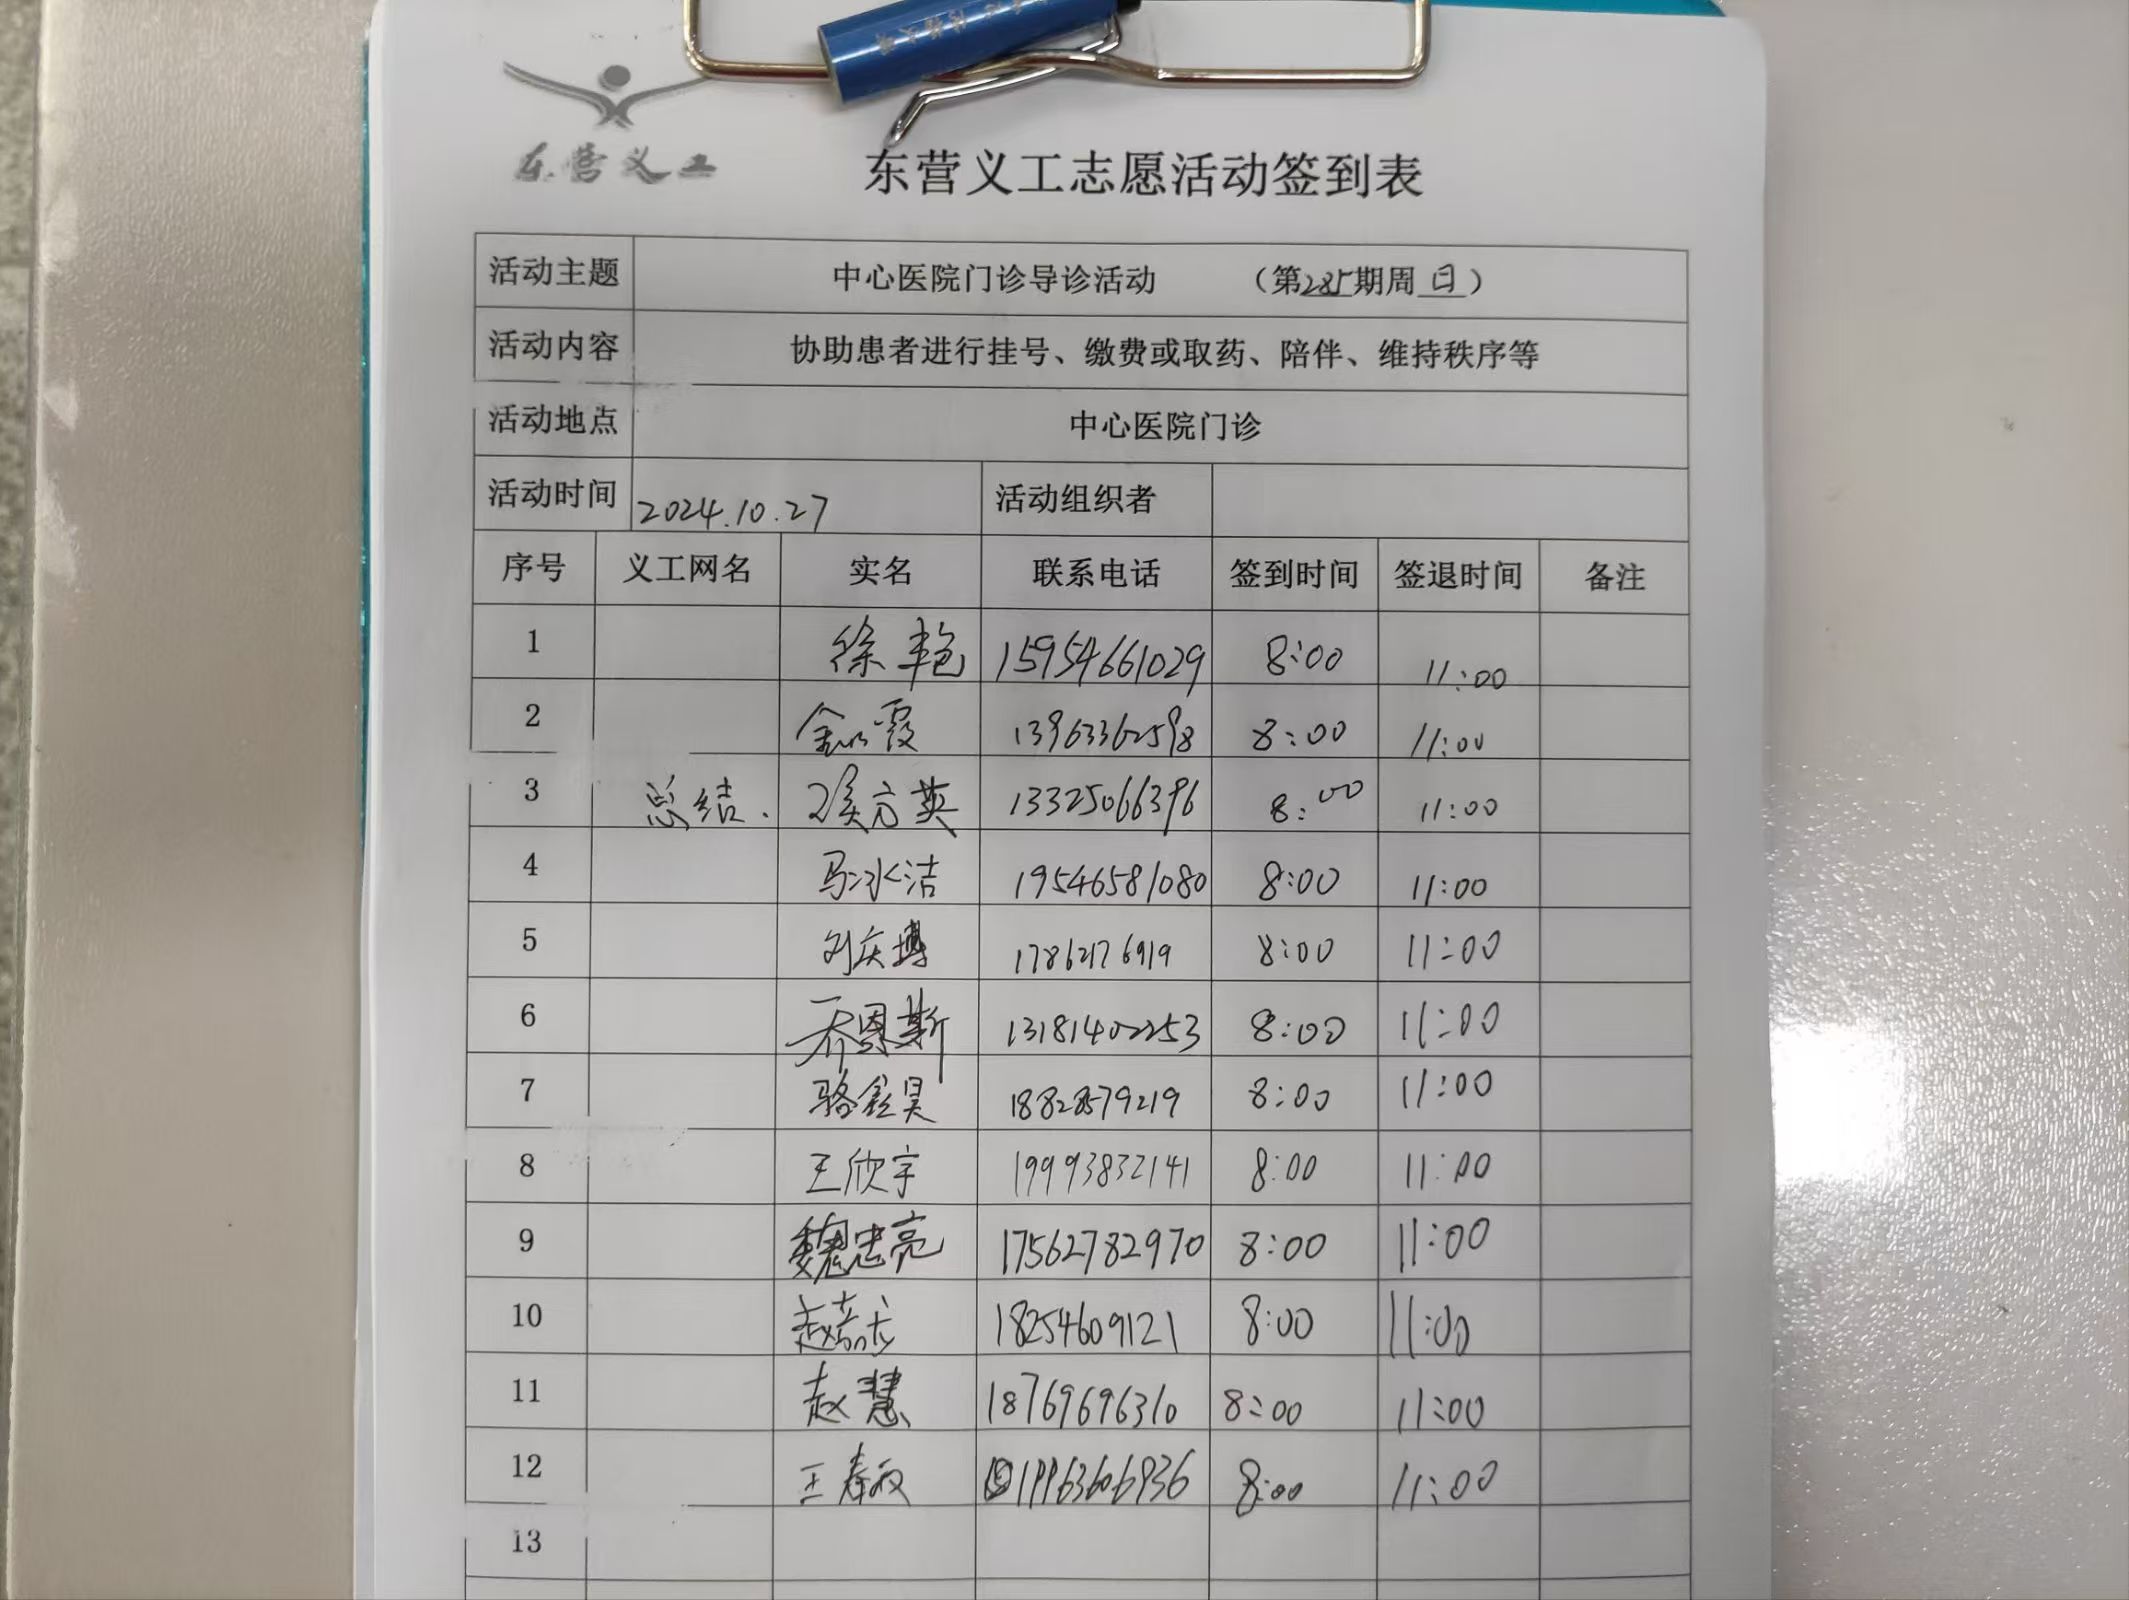 东营义工
东营义工志愿活动签到表
活动主题 中心医院门诊导诊活动 （第285期周日）
活动内容 协助患者进行挂号、缴费或取药、陪伴、维持秩序等
活动地点 中心医院门诊
活动时间 2024.10.27 活动组织者
序号 义工网名 实名 联系电话 签到时间 签退时间 备注
1 徐艳 15954661029 8:00 11:00
2 霞 13963362598 8:00 11:00
3 总结. 侯方英 13325066396 8:00 11:00
4 马冰洁 19546581080 8:00 11:00
5 刘庆博 17862176919 8:00 11:00
6 乔恩斯 13181402253 8:00 11:00
7 骆鑫昊 18828579219 8:00 11:00
8 王欣宇 19993832141 8:00 11:00
9 魏忠亮 17562782970 8:00 11:00
10 赵 18254609121 8:00 11:00
11 赵慧 18769696310 8:00 11:00
12 王春 19963606936 8:00 11:00
13